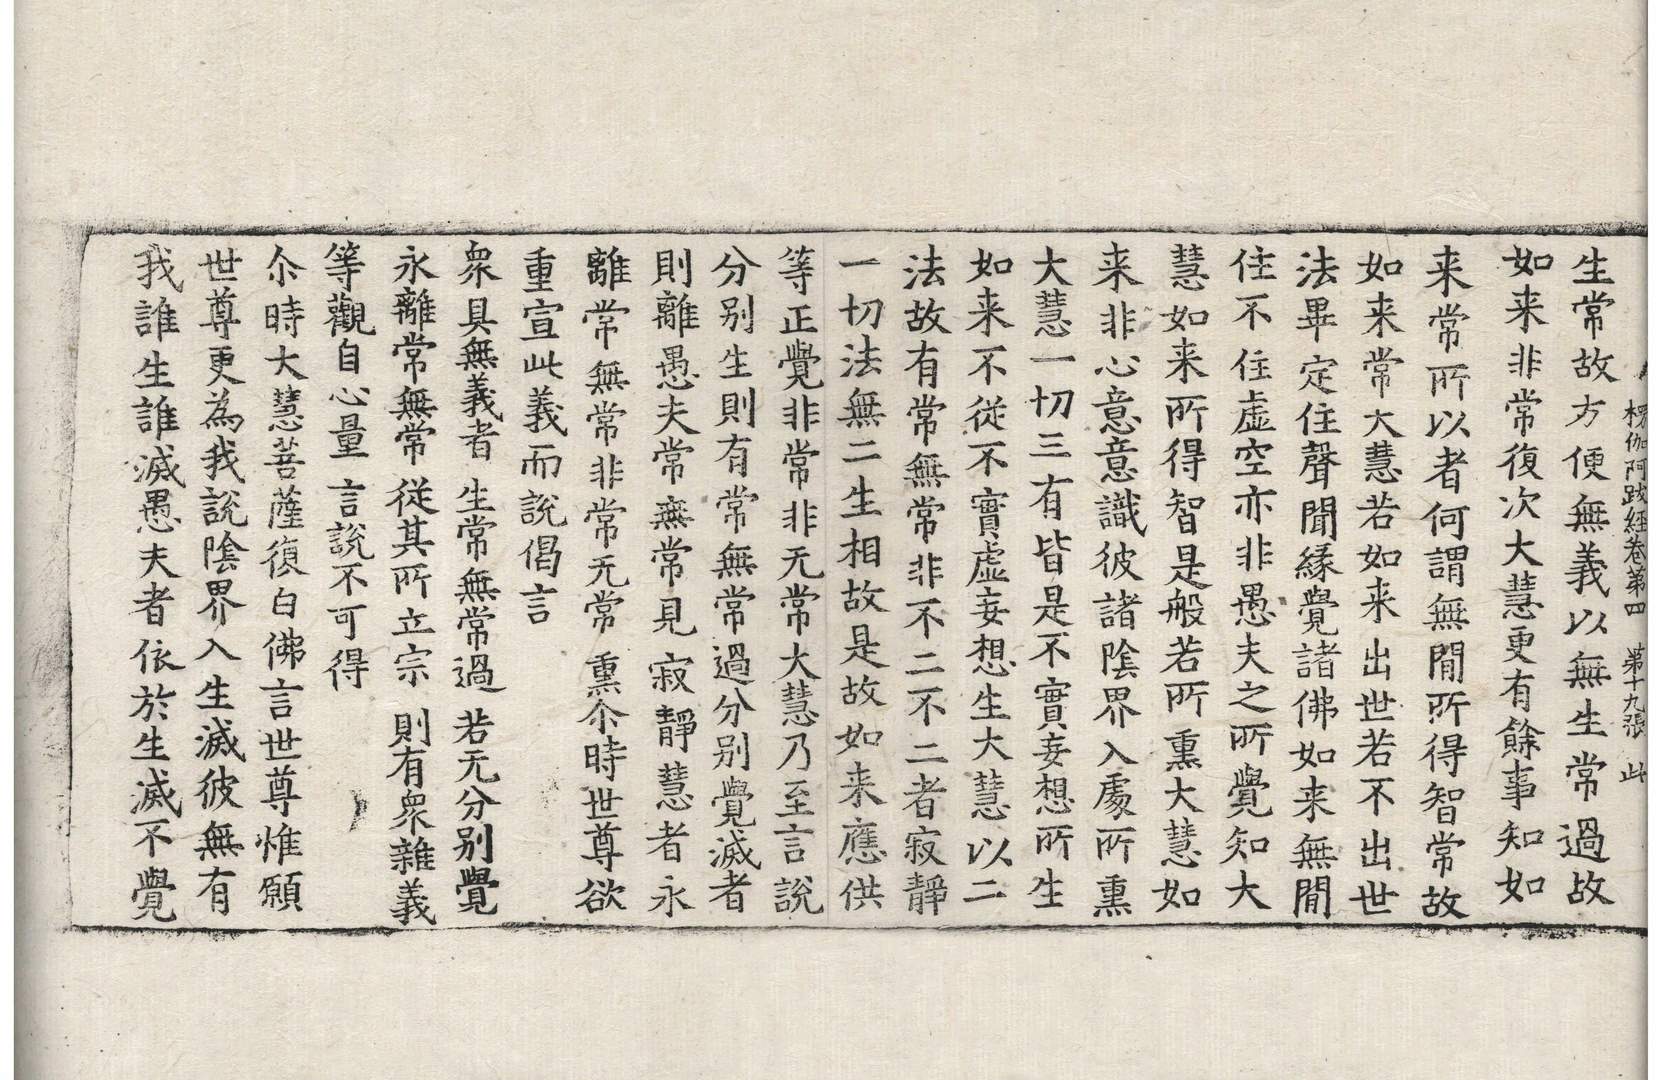 楞伽阿跋經卷第四　第十九張　此
生常故方便無義以無生常過故
如来非常復次大慧更有餘事知如
来常所以者何謂無閒所得智常故
如来常大慧若如来出世若不出世
法畢定住聲聞緣覺諸佛如来無閒
住不住虛空亦非愚夫之所覺知大
慧如来所得智是般若所熏大慧如
来非心意意識彼諸陰界入處所熏
大慧一切三有皆是不實妄想所生
如来不從不實虛妄想生大慧以二
法故有常無常非不二不二者寂靜
一切法無二生相故是故如来應供
等正覺非常非无常大慧乃至言說
分別生則有常無常過分別覺滅者
則離愚夫常無常見寂靜慧者永
離常無常非常无常熏尒時世尊欲
重宣此義而說偈言
衆具無義者　生常無常過　若无分別覺
永離常無常　從其所立宗　則有衆雜義
等觀自心量　言說不可得
尒時大慧菩薩復白佛言世尊惟願
世尊更為我說陰界入生滅彼無有
我誰生誰滅愚夫者依於生滅不覺